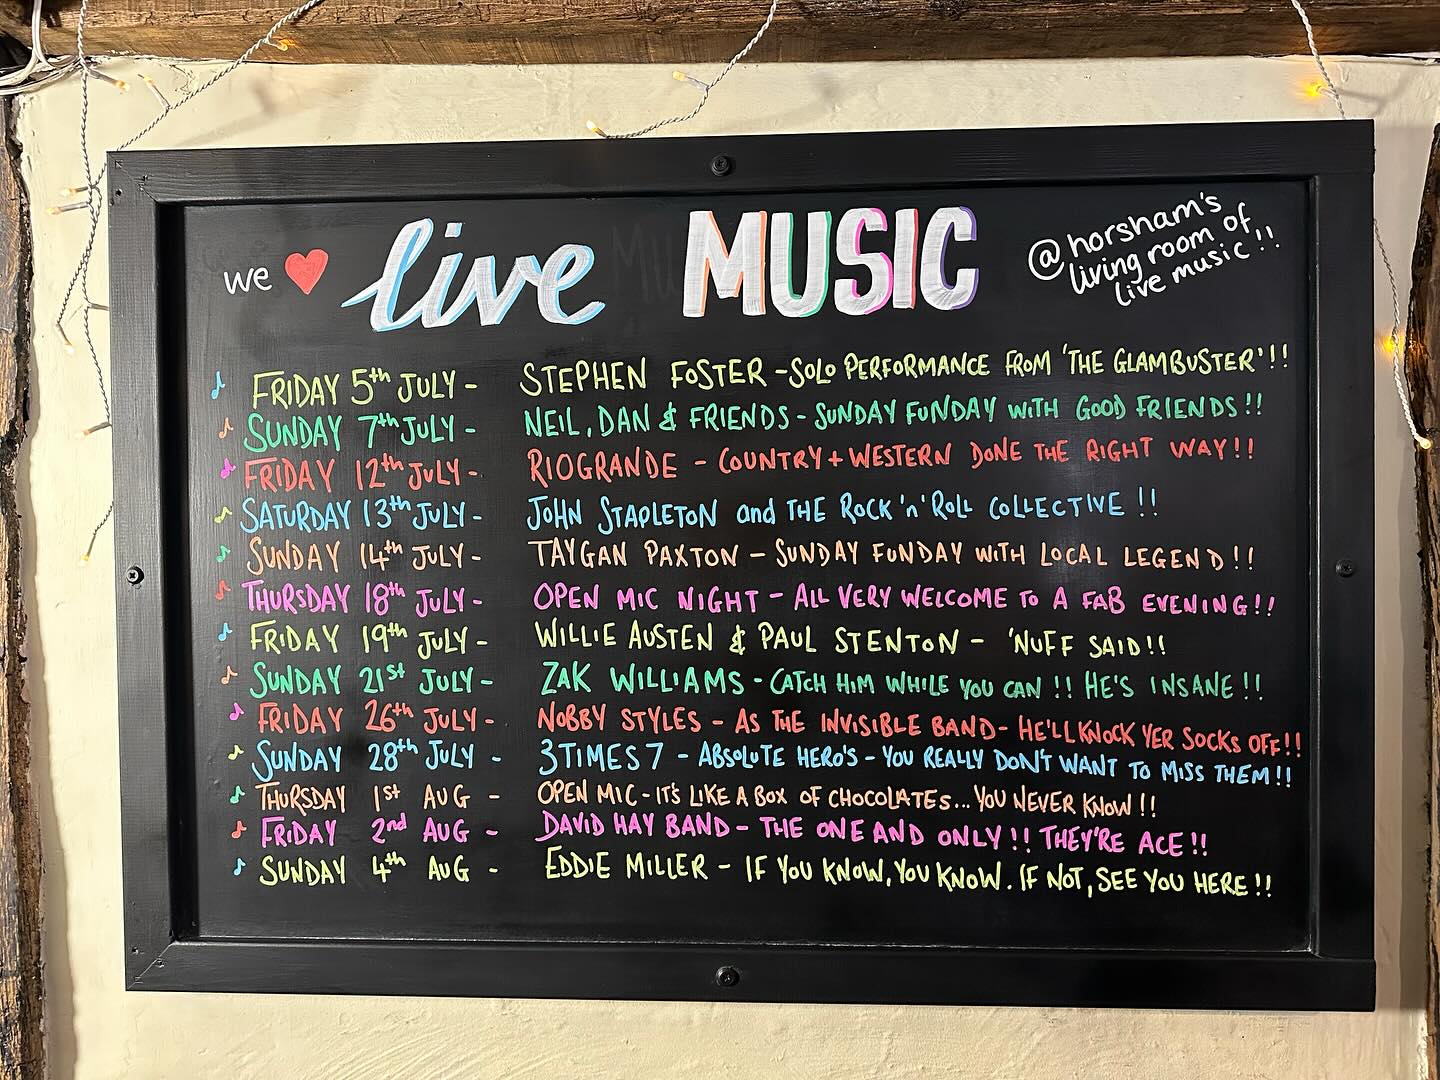 we ❤ live MUSIC
@horsham's
living room of
live music!!
FRIDAY 5th JULY - STEPHEN FOSTER - SOLO PERFORMANCE FROM 'THE GLAMBUSTER'!!
SUNDAY 7th JULY - NEIL, DAN & FRIENDS - SUNDAY FUNDAY WITH GOOD FRIENDS!!
FRIDAY 12th JULY - RIOGRANDE - COUNTRY + WESTERN DONE THE RIGHT WAY!!
SATURDAY 13th JULY - JOHN STAPLETON and THE ROCK 'n' ROLL COLLECTIVE!!
SUNDAY 14th JULY - TAYGAN PAXTON - SUNDAY FUNDAY WITH LOCAL LEGEND!!
THURSDAY 18th JULY - OPEN MIC NIGHT - ALL VERY WELCOME TO A FAB EVENING!!
FRIDAY 19th JULY - WILLIE AUSTEN & PAUL STENTON - 'NUFF SAID!!
SUNDAY 21st JULY - ZAK WILLIAMS - CATCH HIM WHILE YOU CAN!! HE'S INSANE!!
FRIDAY 26th JULY - NOBBY STYLES - AS THE INVISIBLE BAND - HE'LL KNOCK YER SOCKS OFF!!
SUNDAY 28th JULY - 3TIMES7 - ABSOLUTE HERO'S - YOU REALLY DON'T WANT TO MISS THEM!!
THURSDAY 1st AUG - OPEN MIC - IT'S LIKE A BOX OF CHOCOLATES... YOU NEVER KNOW!!
FRIDAY 2nd AUG - DAVID HAY BAND - THE ONE AND ONLY!! THEY'RE ACE!!
SUNDAY 4th AUG - EDDIE MILLER - IF YOU KNOW, YOU KNOW. IF NOT, SEE YOU HERE!!